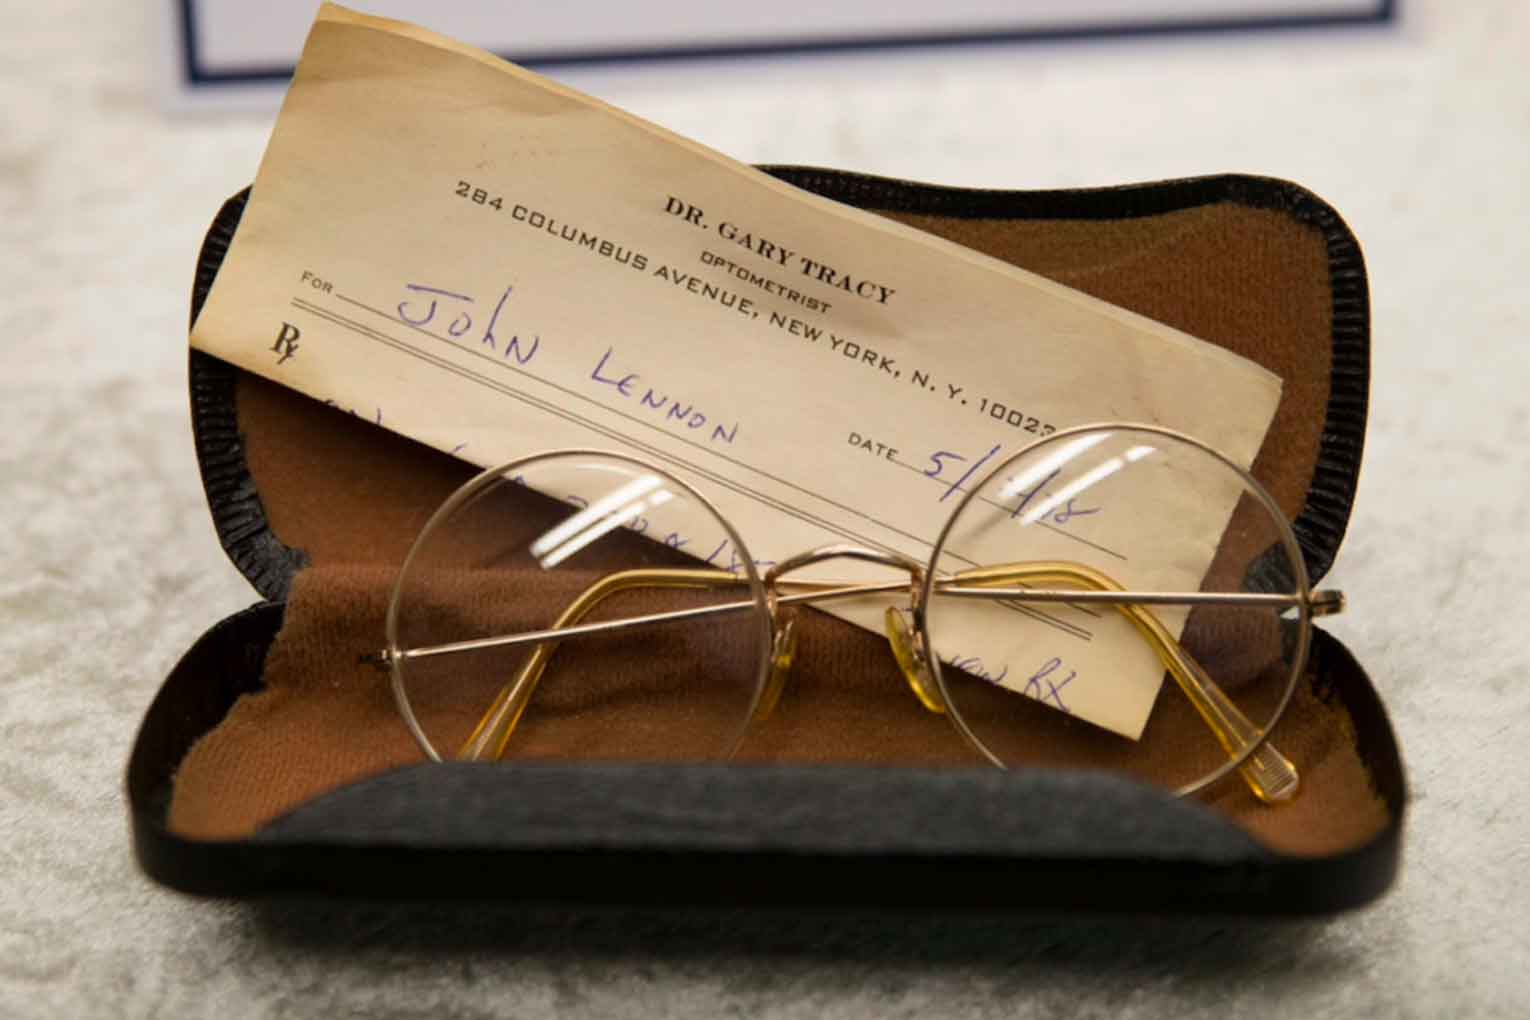 DR. GARY TRACY
OPTOMETRIST
284 COLUMBUS AVENUE, NEW YORK, N. Y. 10023
FOR JOHN LENNON
DATE 5/
Rx
RX